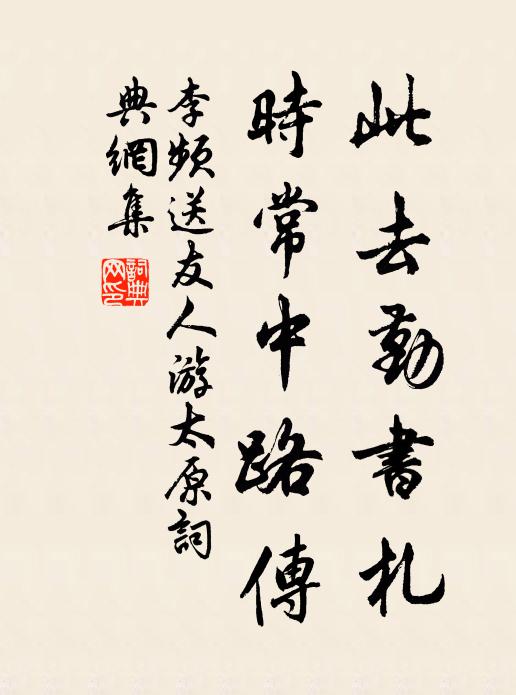 此去勤書札
時常中路傳
李頻送友人游太原詞
典網集
詞典
网印